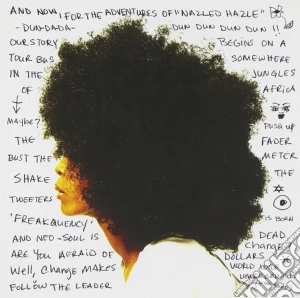 AND NOW, FOR THE ADVENTURES OF "NAZLED HAZLE"
-DUN-DADA- DUN DUN DUN DUN !!
OUR STORY BEGINS ON A
TOUR BUS SOMEWHERE
IN THE JUNGLES
OF AFRICA
MAYBE? PUSH UP
THE FADER
BUST THE METER
SHAKE THE
TWEETERS
'FREAKQUENCY' IS BORN
AND NEO-SOUL IS DEAD
ARE YOU AFRAID OF Change?
Well, Change MAKES DOLLARS
FOLLOW THE LEADER WORLD